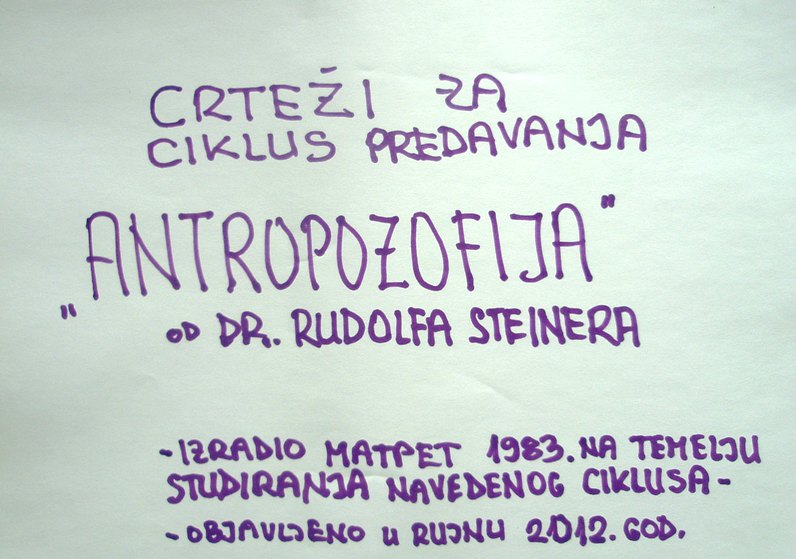 CRTEŽI ZA
CIKLUS PREDAVANJA
„ANTROPOZOFIJA"
OD DR. RUDOLFA STEINERA
-IZRADIO MATPET 1983. NA TEMELJU
STUDIRANJA NAVEDENOG CIKLUSA-
-OBJAVLJENO U RUJNU 2012. GOD.